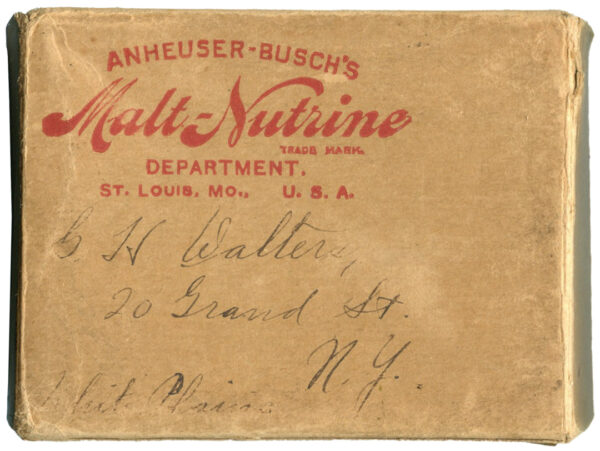 ANHEUSER-BUSCH'S
Malt-Nutrine
TRADE MARK.
DEPARTMENT.
ST. LOUIS, MO., U. S. A.
C H Walters,
20 Grand St.
N. Y.
White Plains